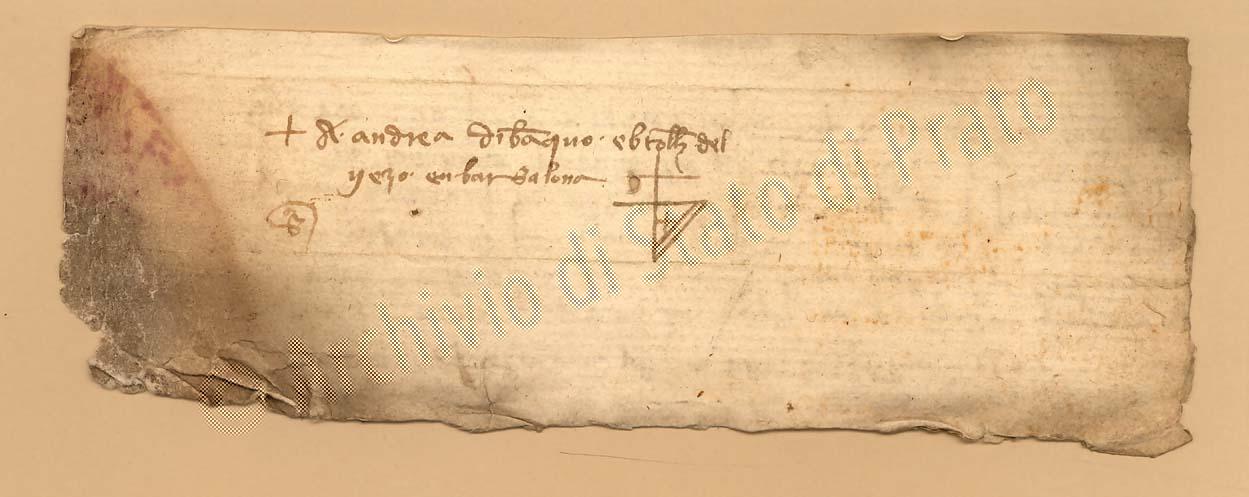 + A andrea di bāquo · e btolō del
nero · en barsalona
© Archivio di Stato di Prato